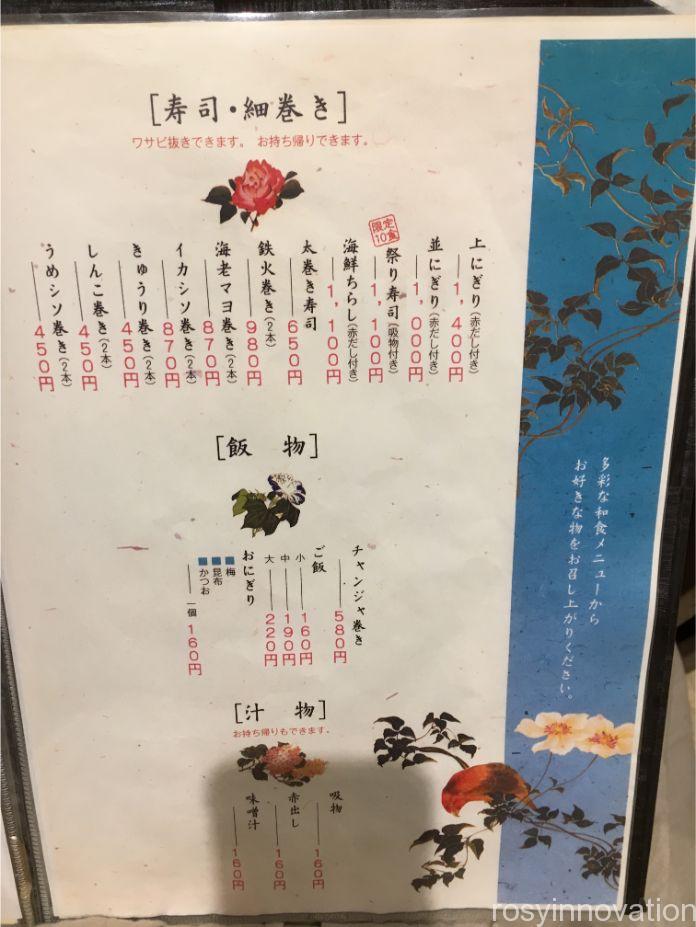 [寿司・細巻き]
ワサビ抜きできます。 お持ち帰りできます。
上にぎり(赤だし付き)
1,400円
並にぎり(赤だし付き)
1,000円
限定
10食
祭り寿司(吸物付き)
1,100円
海鮮ちらし(赤だし付き)
1,100円
太巻き寿司
650円
鉄火巻き(2本)
980円
海老マヨ巻き(2本)
870円
イカシソ巻き(2本)
870円
きゅうり巻き(2本)
450円
しんこ巻き(2本)
450円
うめシソ巻き(2本)
450円
[飯 物]
チャンジャ巻き
580円
ご飯
小 160円
中 190円
大 220円
おにぎり
梅
昆布
かつお
一個 160円
[汁 物]
お持ち帰りもできます。
吸物
160円
赤出し
160円
味噌汁
160円
多彩な和食メニューから
お好きな物をお召し上がりください。
rosyinnovation